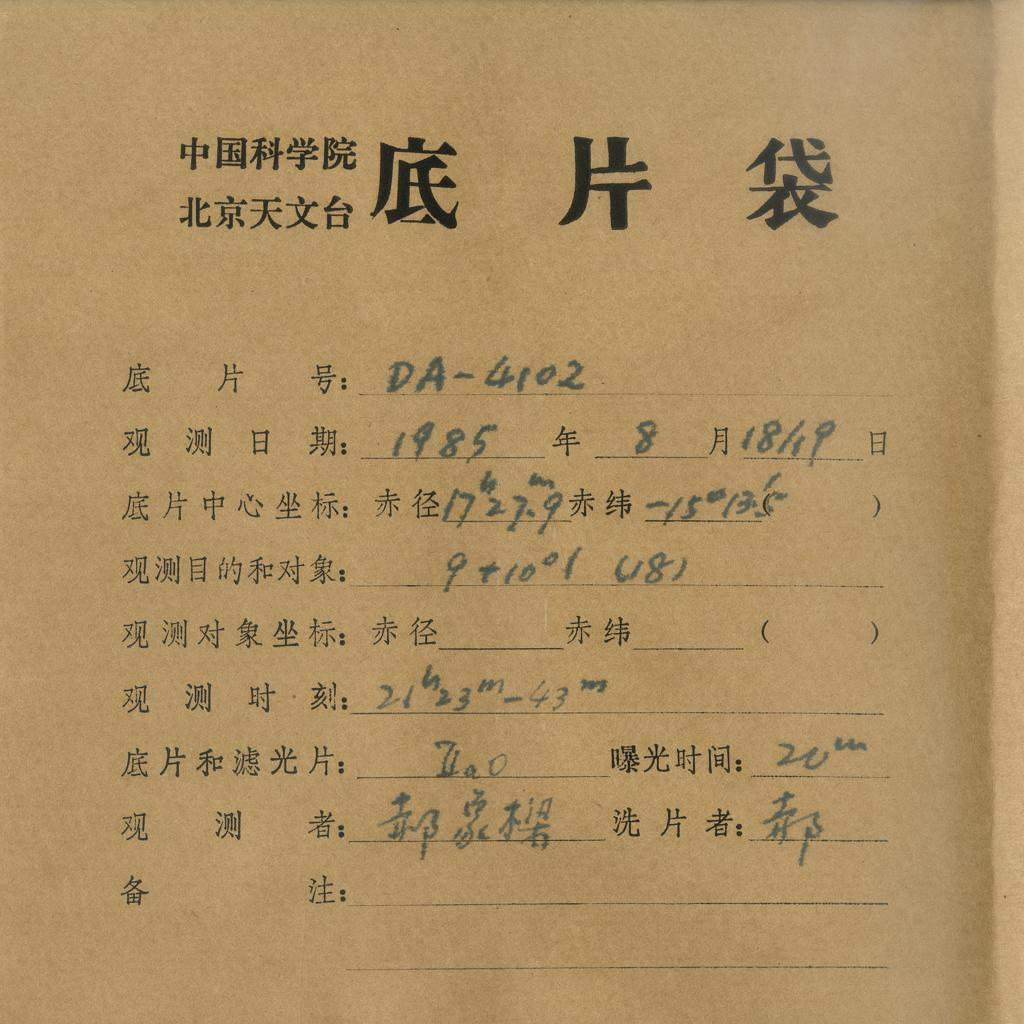 中国科学院
北京天文台
底片袋
底片号：DA-4102
观测日期：1985年8月18/19日
底片中心坐标：赤径17h27m.9赤纬-15°13'.5( )
观测目的和对象：9+10°1 (18)
观测对象坐标：赤径 赤纬 ( )
观测时刻：21h23m-43m
底片和滤光片：IIaO 曝光时间：20m
观测者：郝象樑 洗片者：郝
备注：